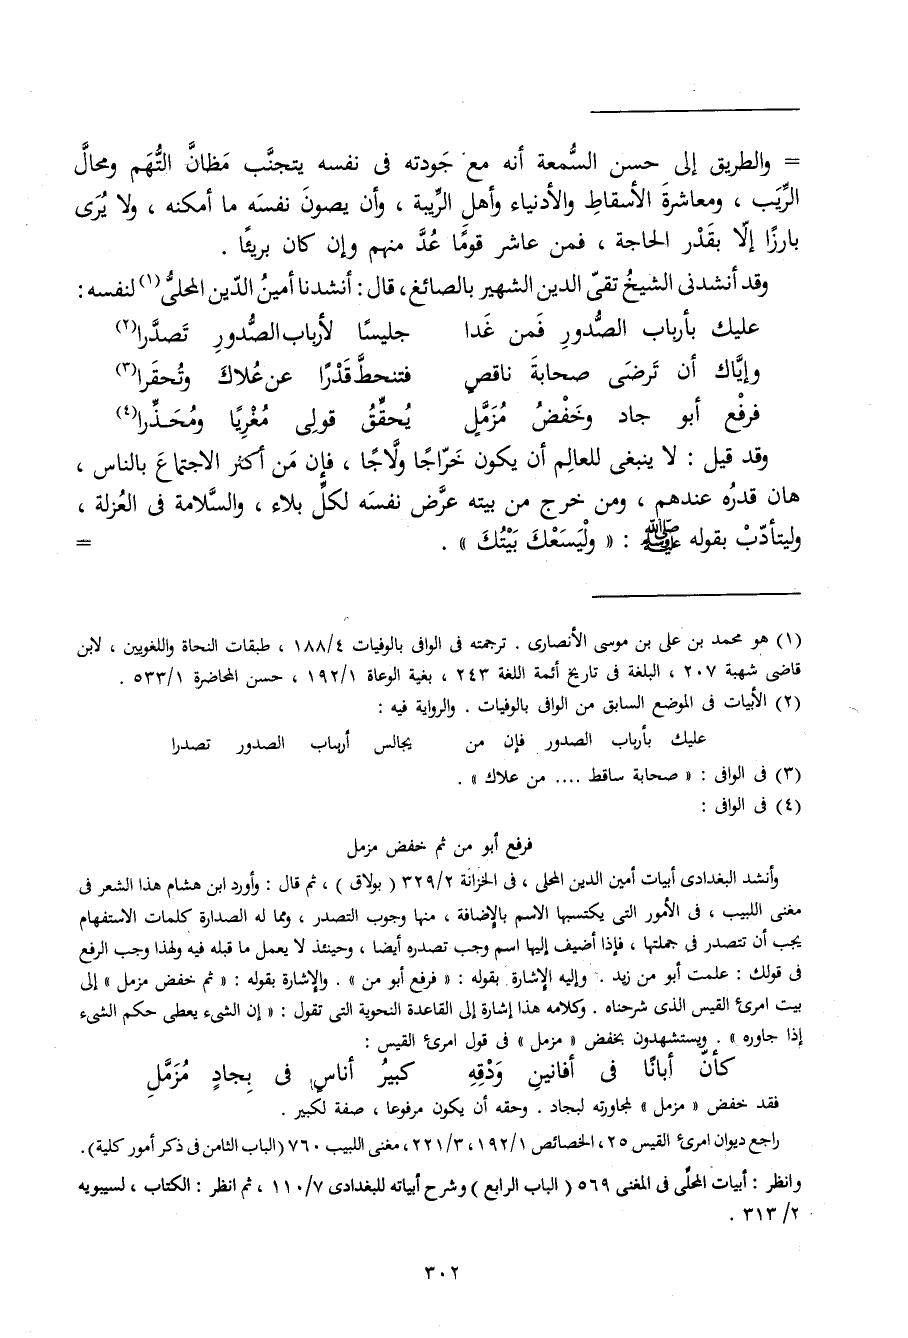 = والطريق إلى حسن السُّمعة أنه مع جَودته فى نفسه يتجنَّب مَظانَّ التُّهَم ومحالَّ
الرِّيَب ، ومعاشرةَ الأسقاطِ والأدنياء وأهلِ الرِّيبة ، وأن يصونَ نفسَه ما أمكنه ، ولا يُرَى
بارزًا إلّا بقَدْر الحاجة ، فمن عاشر قومًا عُدَّ منهم وإن كان بريئًا .
وقد أنشدنى الشيخُ تقىّ الدين الشهير بالصائغ، قال : أنشدنا أمينُ الدّين المحلىُّ(١) لنفسه :
عليك بأرباب الصُّدورِ فَمن غَدا جليسًا لأربابِ الصُّدورِ تَصدَّرا(٢)
وإيَّاك أن تَرضَى صحابةَ ناقصٍ فتنحطَّ قَدْرًا عن عُلاكَ وتُحقَرا(٣)
فرفْع أبو جاد وخَفْضُ مُزَمَّلٍ يُحقِّقُ قولِى مُغْرِيًا ومُحَذِّرا(٤)
وقد قيل : لا ينبغى للعالِم أن يكون خَرّاجًا ولَّاجًا ، فإن مَن أكثر الاجتماعَ بالناس ،
هان قدرُه عندهم ، ومن خرج من بيته عرَّض نفسَه لكلِّ بلاء ، والسَّلامة فى العُزلة ،
وليتأدّبْ بقوله ﷺ : « ولْيَسَعْكَ بَيْتُكَ » . =
(١) هو محمد بن على بن موسى الأنصارى . ترجمته فى الوافى بالوفيات ١٨٨/٤ ، طبقات النحاة واللغويين ، لابن
قاضى شهبة ٢٠٧ ، البلغة فى تاريخ أئمة اللغة ٢٤٣ ، بغية الوعاة ١٩٢/١ ، حسن المحاضرة ٥٣٣/١ .
(٢) الأبيات فى الموضع السابق من الوافى بالوفيات . والرواية فيه :
عليك بأرباب الصدور فإن من يجالس أرباب الصدور تصدرا
(٣) فى الوافى : « صحابة ساقط .... من علاك » .
(٤) فى الوافى :
فرفع أبو من ثم خفض مزمل
وأنشد البغدادى أبيات أمين الدين المحلى ، فى الخزانة ٣٢٩/٢ ( بولاق ) ، ثم قال : وأورد ابن هشام هذا الشعر فى
مغنى اللبيب ، فى الأمور التى يكتسبها الاسم بالإضافة ، منها وجوب التصدر ، ومما له الصدارة كلمات الاستفهام
يجب أن تتصدر فى جملتها ، فإذا أضيف إليها اسم وجب تصدره أيضا ، وحينئذ لا يعمل ما قبله فيه ولهذا وجب الرفع
فى قولك : علمت أبو من زيد . وإليه الإشارة بقوله : « فرفع أبو من » . والإشارة بقوله : « ثم خفض مزمل » إلى
بيت امرئ القيس الذى شرحناه . وكلامه هذا إشارة إلى القاعدة النحوية التى تقول : « إن الشىء يعطى حكم الشىء
إذا جاوره » . ويستشهدون بخفض « مزمل » فى قول امرئ القيس :
كأنّ أبانًا فى أفانينِ وَدْقِهِ كبيرُ أناسٍ فى بِجادٍ مُزَمَّلِ
فقد خفض « مزمل » لمجاورته لبجاد . وحقه أن يكون مرفوعا ، صفة لكبير .
راجع ديوان امرئ القيس ٢٥، الخصائص ١٩٢/١، ٢٢١/٣، مغنى اللبيب ٧٦٠ (الباب الثامن فى ذكر أمور كلية).
وانظر : أبيات المحلّى فى المغنى ٥٦٩ ( الباب الرابع ) وشرح أبياته للبغدادى ١١٠/٧ ، ثم انظر : الكتاب ، لسيبويه
٣١٣/٢ .
٣٠٢